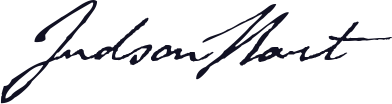 Judson Hart